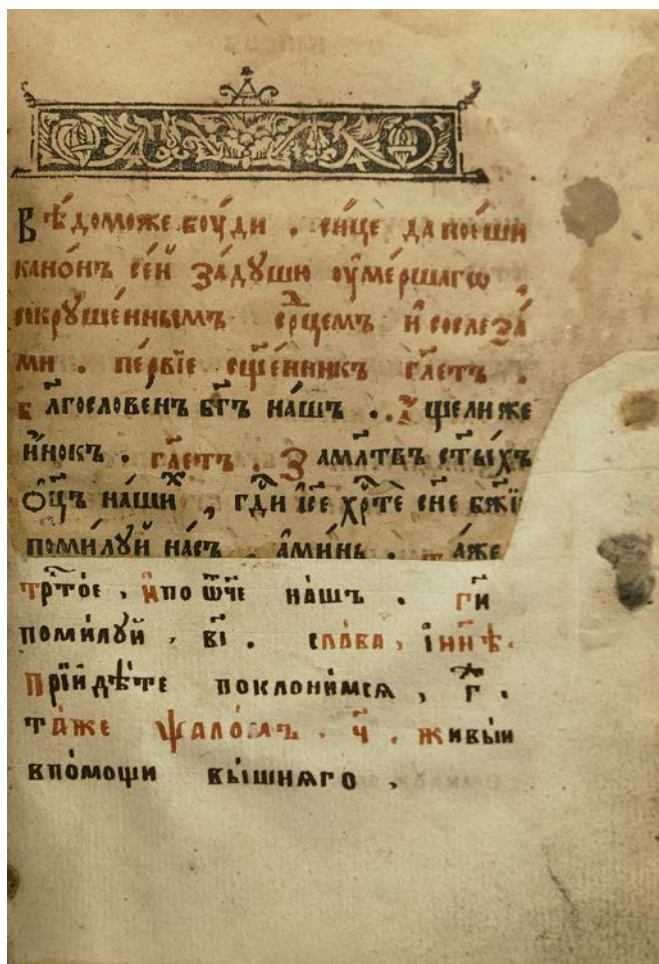 Вѣ́доможе бꙋ́ди . си́це да пое́ши
кано́нъ се́й за́дꙋшю оу҆ме́ршагѡ ,
сокрꙋше́ннымъ ср҃цемъ и҆ сослеза́
ми . пе́рвїе сщ҃е́нникъ гл҃етъ .
блгослове́нъ бг҃ъ на́шъ . А҆щелиже
и҆́нокъ . гл҃етъ . За мл҃твъ ст҃ы́хъ
ѻ҆ц҃ъ на́ши х , гд҃и і҆с҃е хр҃те сн҃е бж҃їи
поми́лꙋй на́съ . а҆ми́нь . та́же
трт҃о́е , и҆по ѿч҃е на́шъ . гд҃и
поми́лꙋй , в҃і . сла́ва , и҆ нн҃ѣ .
Прїидѣ́те поклони́мся , г҃ .
та́же ѱало́мъ . ч҃ . живы́и
впо́мощи вы́шнѧго .